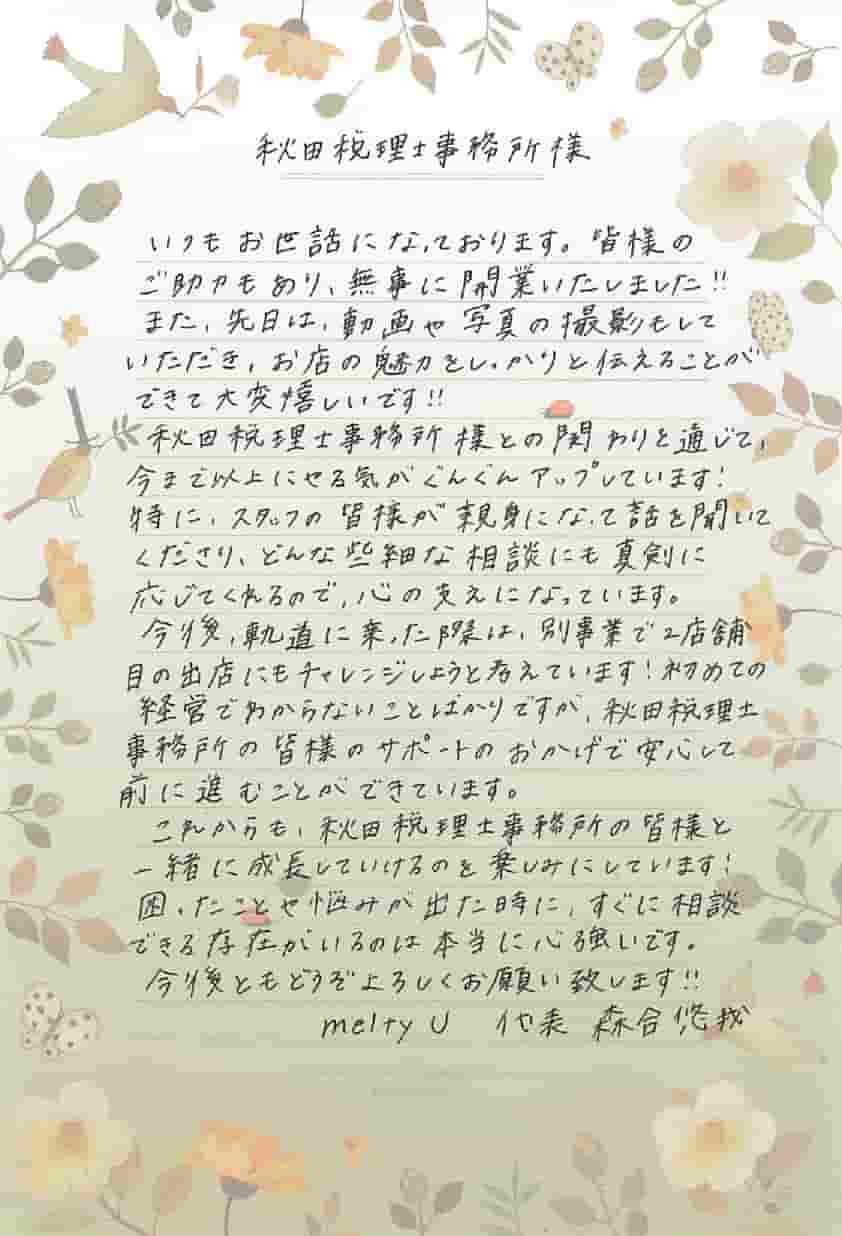 秋田税理士事務所様
いつもお世話になっております。皆様の
ご助力もあり、無事に開業いたしました!!
また、先日は、動画や写真の撮影もして
いただき、お店の魅力をしっかりと伝えることが
できて大変嬉しいです!!
秋田税理士事務所様との関わりを通じて、
今まで以上にやる気がぐんぐんアップしています!
特に、スタッフの皆様が親身になって話を聞いて
くださり、どんな些細な相談にも真剣に
応じてくれるので、心の支えになっています。
今後、軌道に乗った際は、別事業で2店舗
目の出店にもチャレンジしようと考えています!初めての
経営でわからないことばかりですが、秋田税理士
事務所の皆様のサポートのおかげで安心して
前に進むことができています。
これからも、秋田税理士事務所の皆様と
一緒に成長していけるのを楽しみにしています!
困ったことや悩みが出た時に、すぐに相談
できる存在がいるのは本当に心強いです。
今後ともどうぞよろしくお願い致します!!
melty U 代表 森合悠哉